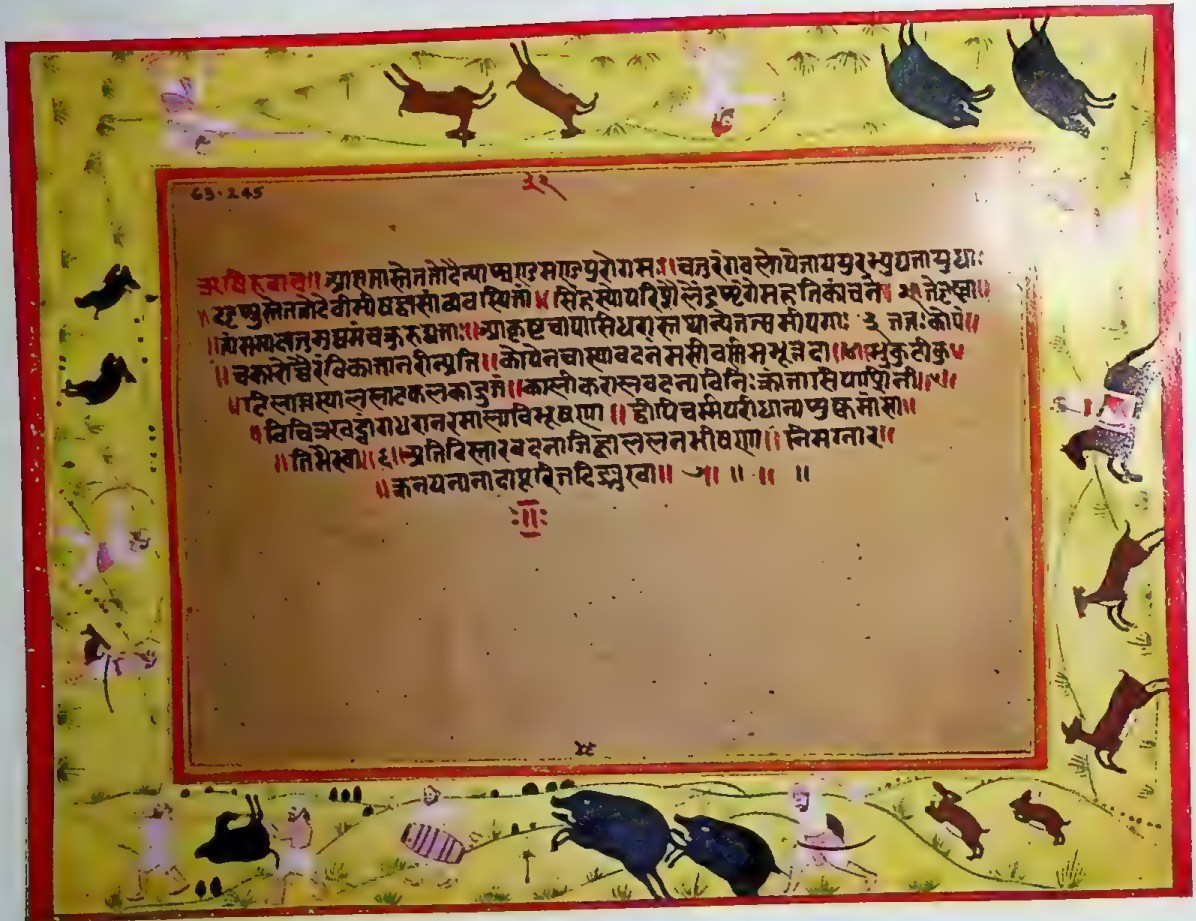 63·245
३२
ऋषिरुवाच॥ आज्ञप्तास्तेततोदैत्याश्चण्डमुण्डपुरोगमाः॥चतुरंगबलोपेताययुरभ्युद्यतायुधाः
॥ददृशुस्तेततोदेवीमीषद्धासांव्यवस्थितां॥सिंहस्योपरिशैलेंद्रशृंगेमहतिकांचने॥ तेदृष्ट्वा॥
॥तांसमादातुमुद्यमंचक्रुरुद्यताः॥आकृष्टचापासिधरास्तथान्येतत्समीपगाः ३ ततःकोपं॥
॥चकारोच्चैरंबिकातानरीन्प्रति॥कोपेनचास्यावदनंमसीवर्णमभूत्तदा॥४॥भृकुटीकु॥
॥टिलात्तस्याललाटफलकाद्द्रुतं॥कालीकरालवदनाविनिःक्रांतासिपाशिनी॥५॥
॥विचित्रखट्वांगधरानरमालाविभूषणा॥द्वीपिचर्मपरीधानाशुष्कमांसा॥
॥तिभैरवा॥६॥अतिविस्तारवदनाजिह्वाललनभीषणा॥निमग्नार॥
॥क्तनयनानादापूरितदिङ्मुखा॥ ७॥ ॥ ॥ ॥
:॥: